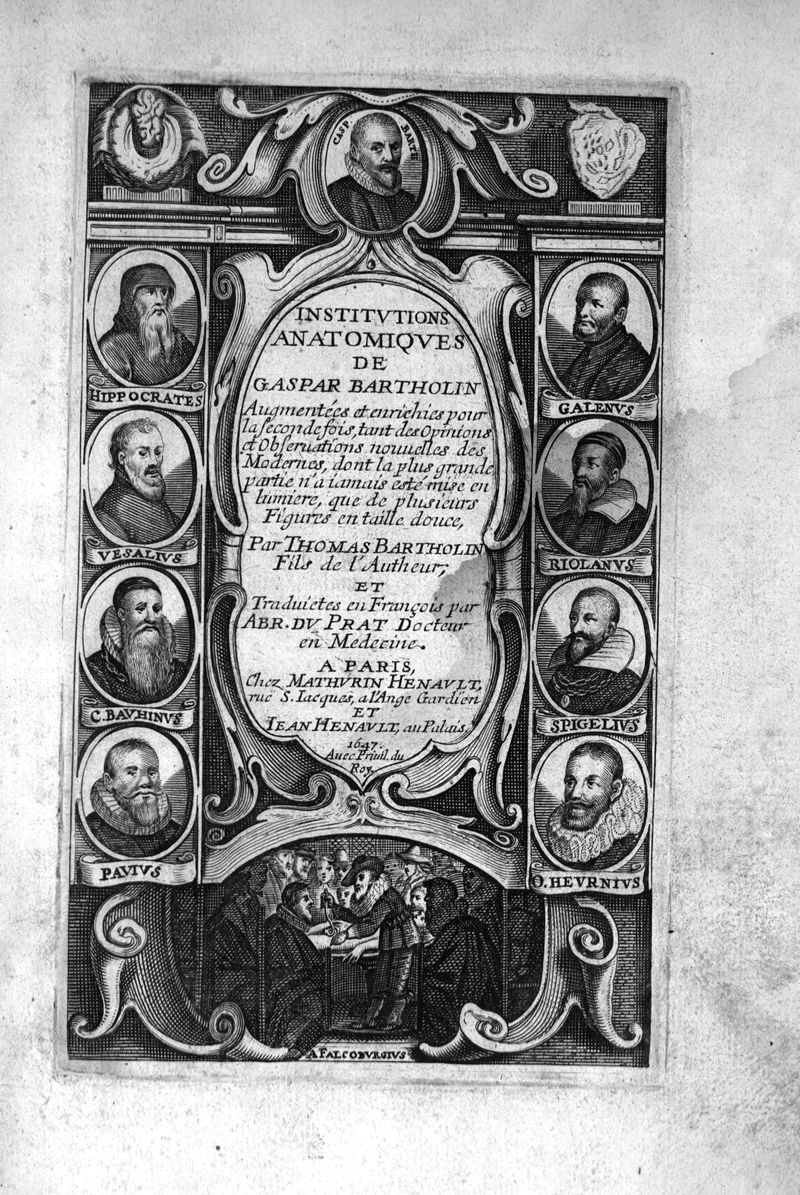 CASP. BARTH
INSTITVTIONS
ANATOMIQVES
DE
GASPAR BARTHOLIN
Augmentées et enrichies pour
la seconde fois, tant des Opinions
et Obseruations nouuelles des
Modernes, dont la plus grande
partie n'a iamais esté mise en
lumiere, que de plusieurs
Figures en taille douce,
Par THOMAS BARTHOLIN
Fils de l'Autheur;
ET
Traduictes en François par
ABR. DV PRAT Docteur
en Medecine.
A PARIS,
Chez MATHVRIN HENAVLT,
ruë S. Iacques, a l'Ange Gardien
ET
IEAN HENAVLT, au Palais,
1647.
Auec Priuil. du
Roy.
HIPPOCRATES
VESALIVS
C. BAVHINVS
PAVIVS
GALENVS
RIOLANVS
SPIGELIVS
O. HEVRNIVS
A FALCOBVRGIVS